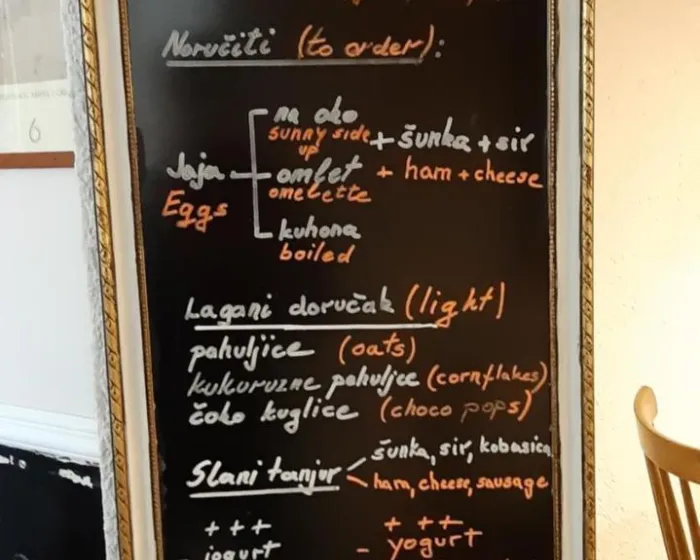 Naručiti (to order):
na oko
sunny side
up
+ šunka + sir
Jaja
omlet
+ ham + cheese
Eggs
omelette
kuhana
boiled
Lagani doručak (light)
pahuljice (oats)
kukuruzne pahuljice (cornflakes)
čoko kuglice (choco pops)
šunka, sir, kobasica
Slani tanjur
ham, cheese, sausage
+ + + + + +
jogurt - yogurt
6